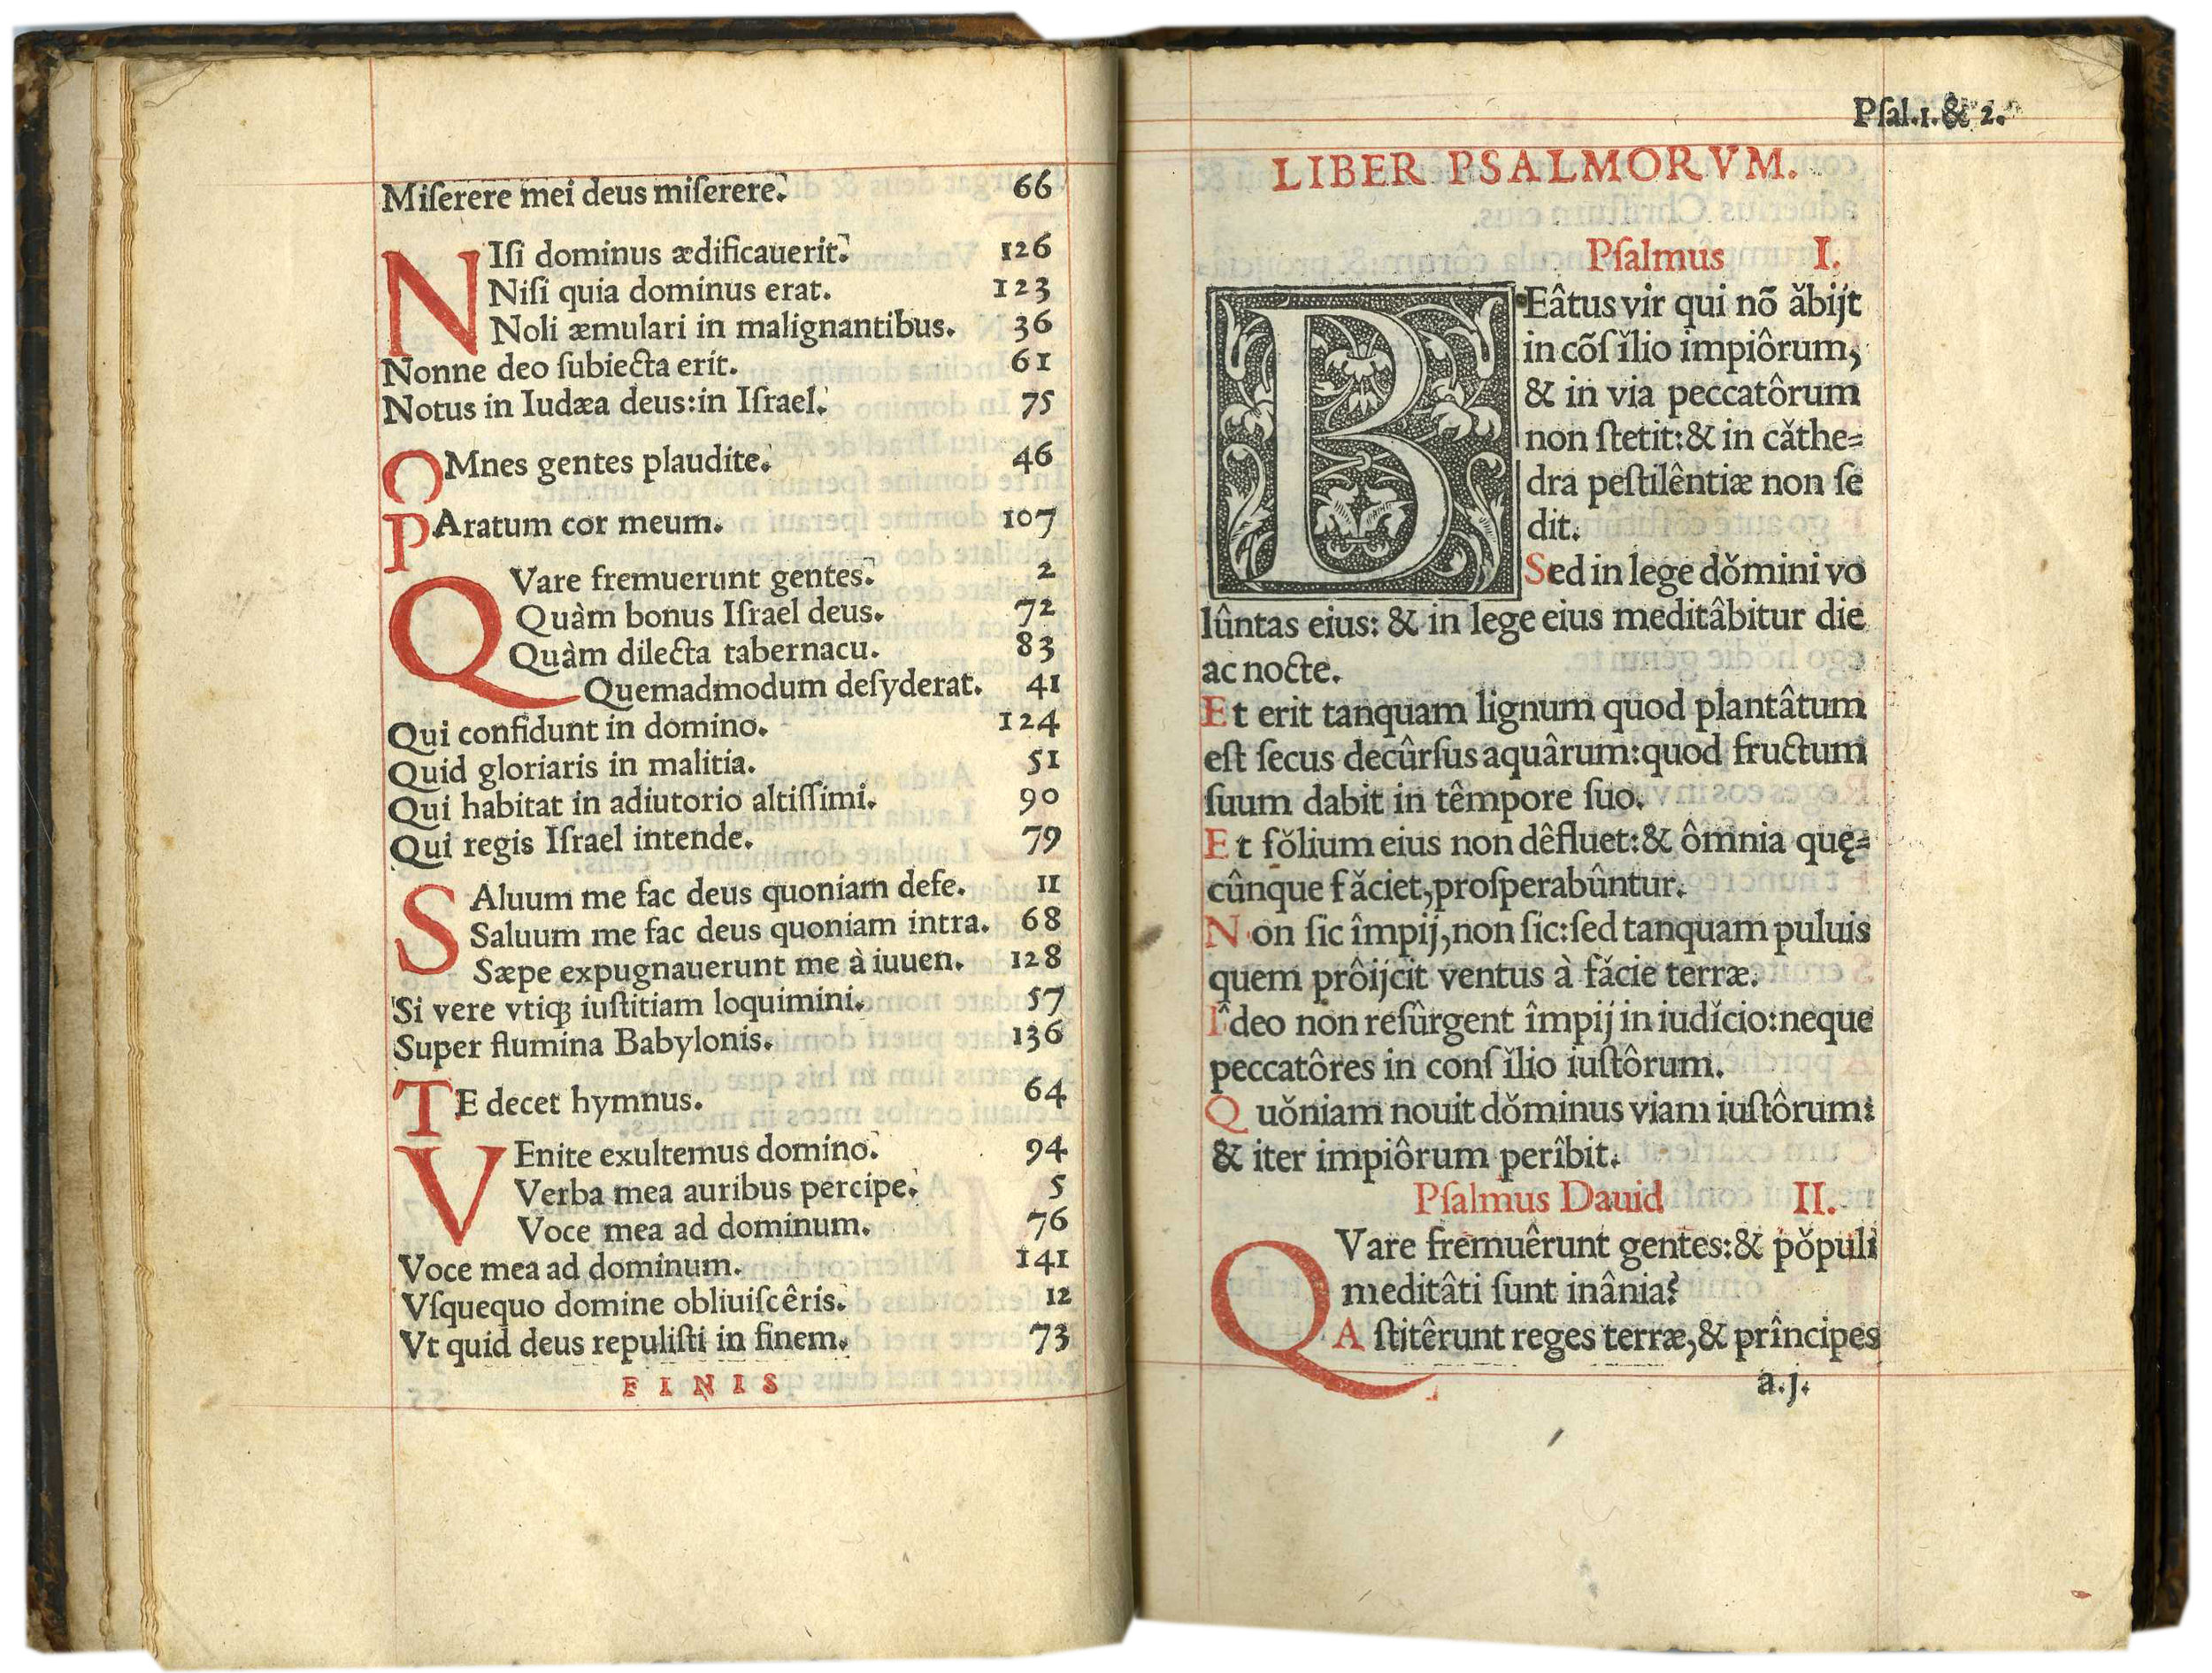 Miſerere mei deus miſerere. 66
NIſi dominus ædificauerit. 126
Niſi quia dominus erat. 123
Noli æmulari in malignantibus. 36
Nonne deo ſubiecta erit. 61
Notus in Iudæa deus:in Iſrael. 75
OMnes gentes plaudite. 46
PAratum cor meum. 107
QVare fremuerunt gentes. 2
Quàm bonus Iſrael deus. 72
Quàm dilecta tabernacu. 83
Quemadmodum deſyderat. 41
Qui confidunt in domino. 124
Quid gloriaris in malitia. 51
Qui habitat in adiutorio altiſſimi. 90
Qui regis Iſrael intende. 79
SAluum me fac deus quoniam defe. 11
Saluum me fac deus quoniam intra. 68
Sæpe expugnauerunt me à iuuen. 128
Si vere vtiqꝫ iuſtitiam loquimini. 57
Super flumina Babylonis. 136
TE decet hymnus. 64
VEnite exultemus domino. 94
Verba mea auribus percipe. 5
Voce mea ad dominum. 76
Voce mea ad dominum. 141
Vſquequo domine obliuiſcêris. 12
Vt quid deus repuliſti in finem. 73
FINIS
Pſal.1.& 2.
LIBER PSALMORVM.
Pſalmus I.
BEâtus vir qui nõ ăbijt
in cõſĭlio impiôrum,
& in via peccatôrum
non ſtetit:& in căthe=
dra peſtilêntiæ non ſe
dit.
Sed in lege dŏmini vo
lûntas eius: & in lege eius meditâbitur die
ac nocte.
Et erit tanquam lignum quod plantâtum
eſt ſecus decûrſus aquârum:quod fructum
ſuum dabit in têmpore ſuo.
Et fŏlium eius non dêfluet:& ômnia quę=
cûnque făciet,proſperabûntur.
Non ſic împij,non ſic:ſed tanquam puluis
quem prôijcit ventus à făcie terræ.
Îdeo non reſûrgent împij in iudĭcio:neque
peccatôres in conſĭlio iuſtôrum.
Quŏniam nouit dŏminus viam iuſtôrum:
& iter impiôrum perîbit.
Pſalmus Dauid II.
QVare fremuêrunt gentes:& pŏpuli
meditâti ſunt inânia?
Aſtitêrunt reges terræ,& prîncipes
a.j.